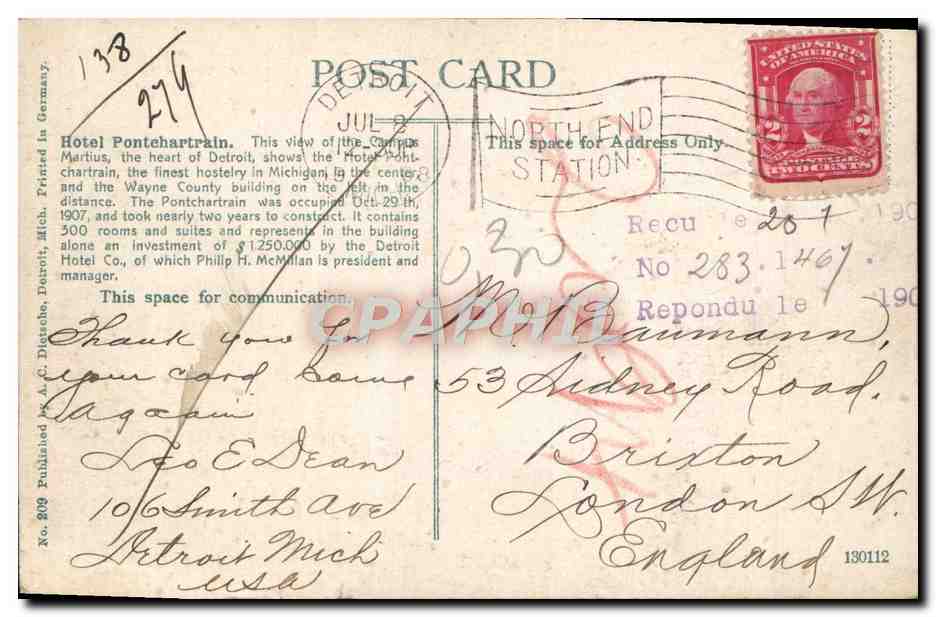 138
274
POST CARD
DETROIT
JUL 8
NORTH END
STATION
UNITED STATES
OF AMERICA
2 2
TWO CENTS
Hotel Pontchartrain. This view of the Campus
Martius, the heart of Detroit, shows the Hotel Pont-
chartrain, the finest hostelry in Michigan, in the center,
and the Wayne County building on the left in the
distance. The Pontchartrain was occupied Oct. 29th,
1907, and took nearly two years to construct. It contains
300 rooms and suites and represents in the building
alone an investment of $1.250.000 by the Detroit
Hotel Co., of which Philip H. McMillan is president and
manager.
This space for communication.
This space for Address Only
Thank you for
your card come
again
Leo E Dean
106 Smith Ave
Detroit Mich
USA
Recu le 28 7 190
No 283.1467.
Repondu le 190
Mr. Baumann,
53 Sidney Road.
Brixton
London S.W.
England
130112
No. 209 Published by A. C. Dietsche, Detroit, Mich. Printed in Germany.
CPAPHIL